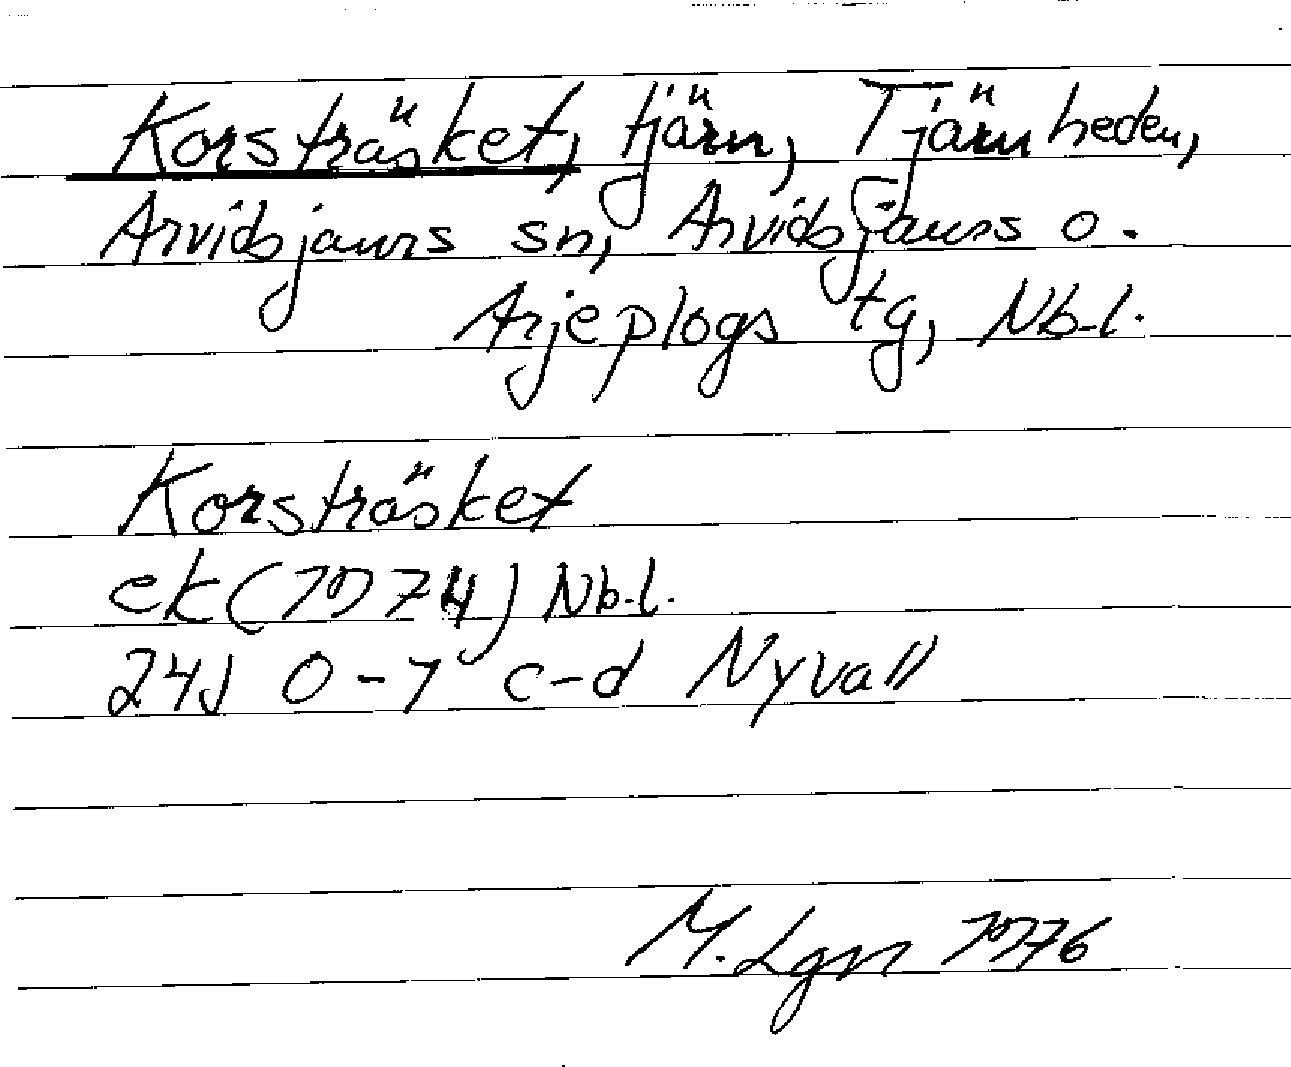 Korsträsket, tjärn, Tjärnheden,
Arvidsjaurs sn, Arvidsjaurs o.
Arjeplogs tg, Nb.l.
Korsträsket
ek (1974) Nb.l.
24J 0-1 c-d Nyvall
M. Lgn 1976